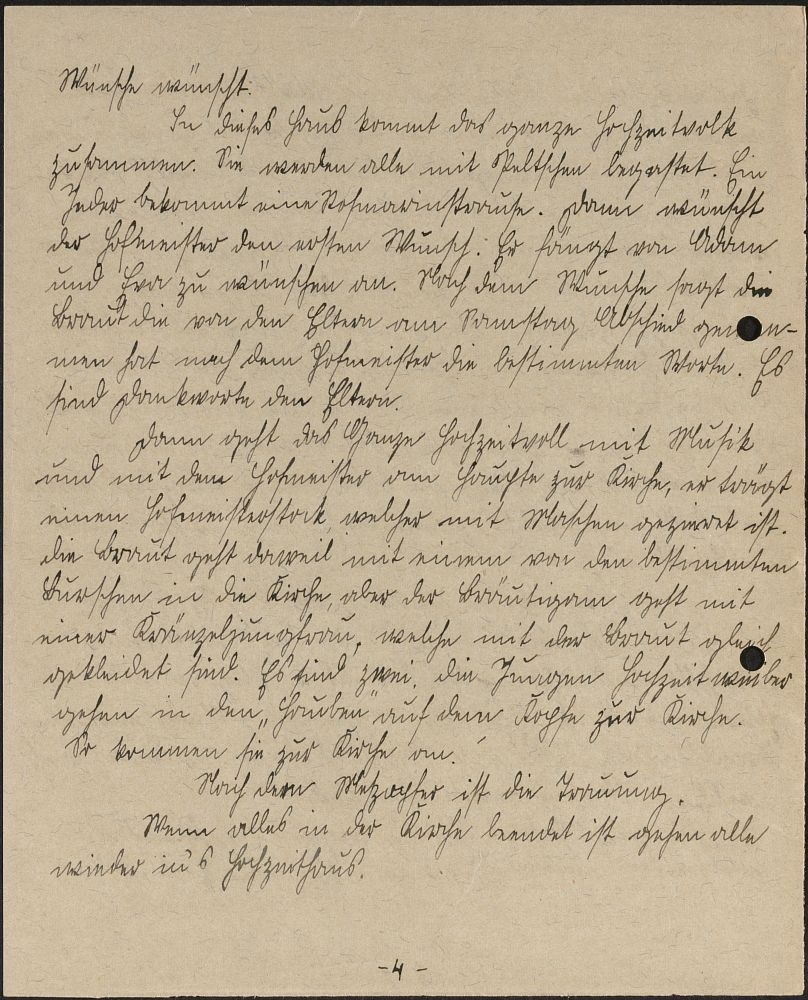 Wünsche wünscht:
In dieses Haus kommt das ganze Hochzeitvolk
zusammen. Sie werden alle mit Peltschen begastet. Ein
Jeder bekommt eine Rosmarinstrause. Dann wünscht
der Hofmeister den ersten Wunsch. Er fängt von Adam
und Eva zu wünschen an. Nach dem Wunsche sagt die
Braut die von den Eltern am Samstag Abschied genom-
men hat nach dem Hofmeister die bestimmten Worte. Es
sind Dankworte den Eltern.
Dann geht das Ganze Hochzeitvoll mit Musik
und mit dem Hofmeister am Haupte zur Kirche, er trägt
einen Hofmeisterstock, welcher mit Maschen gezierrt ist.
die Braut geht daweil mit einem von den bestimmten
Burschen in die Kirche, aber der Bräutigam geht mit
einer Kränzeljungfrau, welche mit der Braut gleich
gekleidet sind. Es sind zwei, die Jungen Hochzeitweiber
gehen in den „Hauben" auf dem Kopfe zur Kirche.
So kommen sie zur Kirche an.
Nach dem Meßopfer ist die Trauung.
Wenn alles in der Kirche beendet ist gehen alle
wieder in's Hochzeithaus.
- 4 -